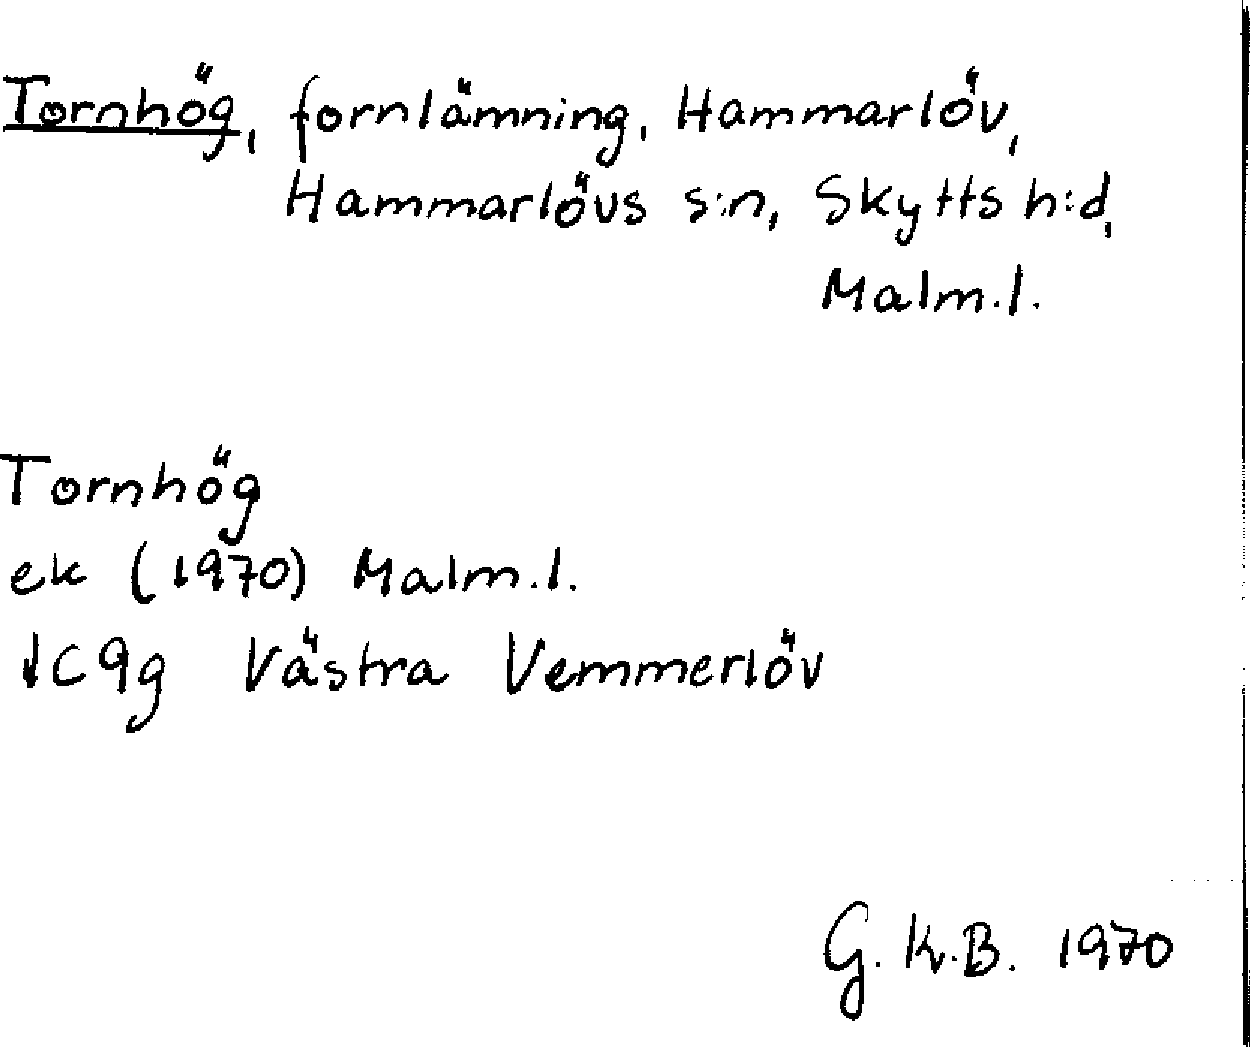 Tornhög, fornlämning, Hammarlöv,
Hammarlövs s:n, Skytts h:d,
Malm.l.
Tornhög
ek (1970) Malm.l.
1C9g Västra Vemmerlöv
G.K.B. 1970